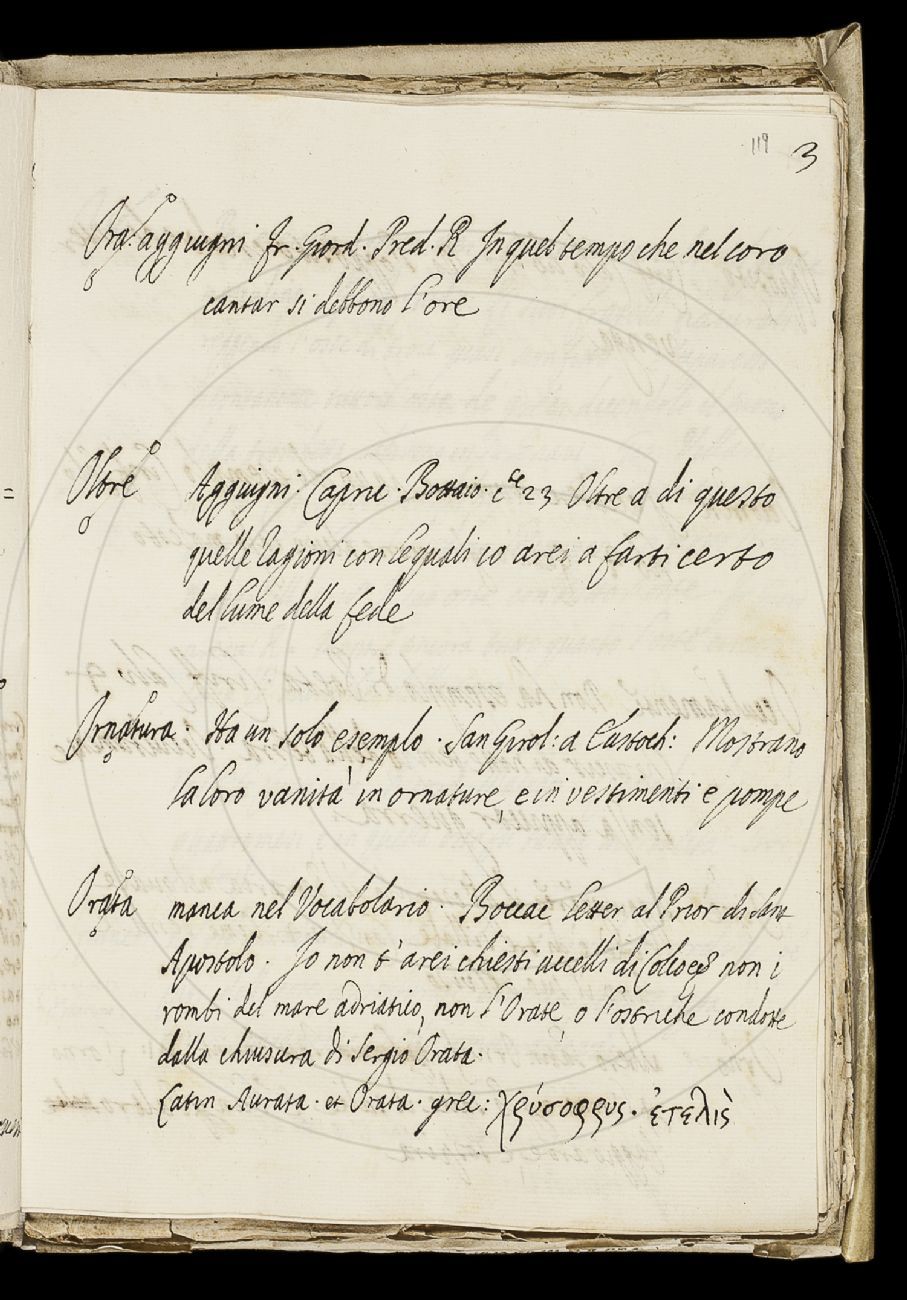 119 3
Ora. aggiugni Fr. Giord. Pred. R In quel tempo che nel coro
cantar si debbono l'ore
Oltre Aggiugni. Capric. Bottaio. 23 Oltre a di questo
quelle ragioni con le quali io arei a farti certo
del lume della fede
Ornatura. Ha un solo esemplo. San Girol: a Eustoch: Mostrano
la loro vanità in ornature, e in vestimenti e pompe
Orata manca nel Vocabolario. Boccac Letter al Prior di Sant
Apostolo. Io non t'arei chiesti uccelli di non i
rombi del mare adriatico, non l'Orate, o l'ostriche condotte
dalla chiusura di Sergio Orata.
Latin Aurata. et Orata. grec: χρύσοφρυς. ἐτελὶς